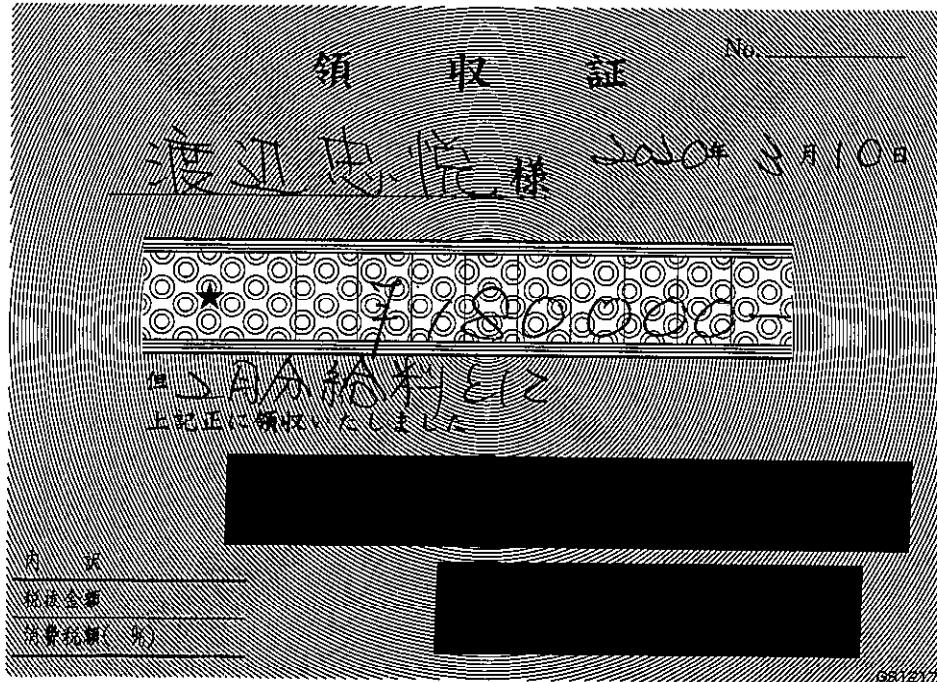 No.
領収証
渡辺忠悦様 2020年3月10日
★ ¥180000-
但 2月分給料として
上記正に領収いたしました
内訳
税抜金額
消費税額( %)